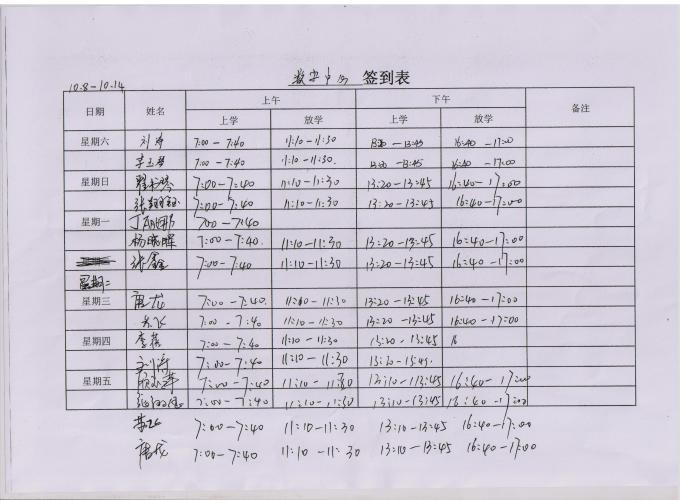 签到表
10.8-10.14
日期 姓名 上午 下午 备注
上学 放学 上学 放学
星期六 刘涛 7:00-7:40 11:10-11:30 13:45 16:40-17:00
7:00-7:40 11:10-11:30. 13:45 16:40-17:00
星期日 7:00-7:40 11:10-11:30 13:20-13:45 16:40-17:00
7:00-7:40 11:10-11:30 13:20-13:45 16:40-17:00
星期一 7:00-7:40
杨晓晖 7:00-7:40. 11:10-11:30 13:20-13:45 16:40-17:00
张鑫 7:00-7:40 11:10-11:30 13:20-13:45 16:40-17:00
星期二
星期三 唐龙 7:00-7:40. 11:10-11:30 13:20-13:45 16:40-17:00
7:00-7:40 11:10-11:30 13:20-13:45 16:40-17:00
星期四 李蓓 7:00-7:40 11:10-11:30 13:20-13:45
刘涛 7:00-7:40 11:10-11:30
星期五 7:00-7:40 11:10-11:30 13:10-13:45 16:40-17:00
7:00-7:40 11:10-11:30 13:10-13:45 16:40-17:00
7:00-7:40 11:10-11:30 13:10-13:45 16:40-17:00
唐龙 7:00-7:40 11:10-11:30 13:10-13:45 16:40-17:00